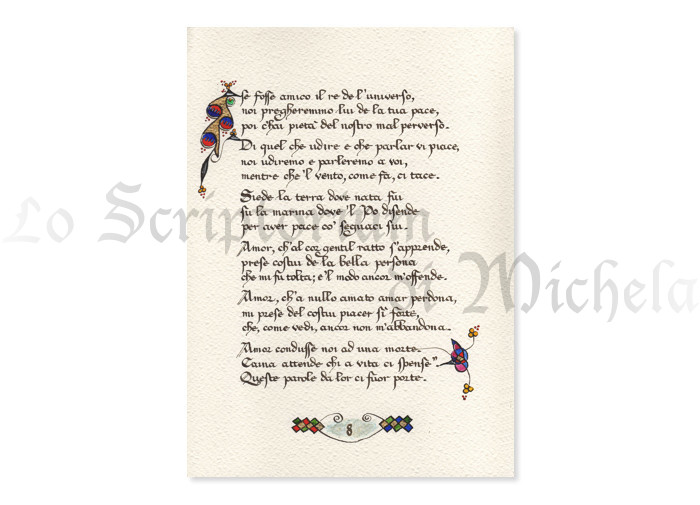 se fosse amico il re de l'universo,
noi pregheremmo lui de la tua pace,
poi c'hai pietà del nostro mal perverso.
Di quel che udire e che parlar vi piace,
noi udiremo e parleremo a voi,
mentre che 'l vento, come fa, ci tace.
Siede la terra dove nata fui
su la marina dove 'l Po disende
per aver pace co' seguaci sui.
Amor, ch'al cor gentil ratto s'apprende,
prese costui de la bella persona
che mi fu tolta; e 'l modo ancor m'offende.
Amor, ch'a nullo amato amar perdona,
mi prese del costui piacer sì forte,
che, come vedi, ancor non m'abbandona.
Amor condusse noi ad una morte.
Caina attende chi a vita ci spense"
Queste parole da lor ci fuor porte.
8
Lo Scriptorium
di Michela